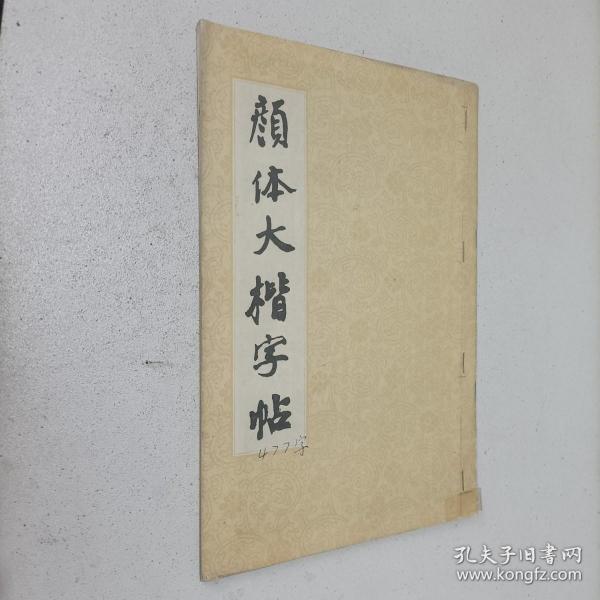 顔体大楷字帖
477字
孔夫子旧书网
www.kongfz.com